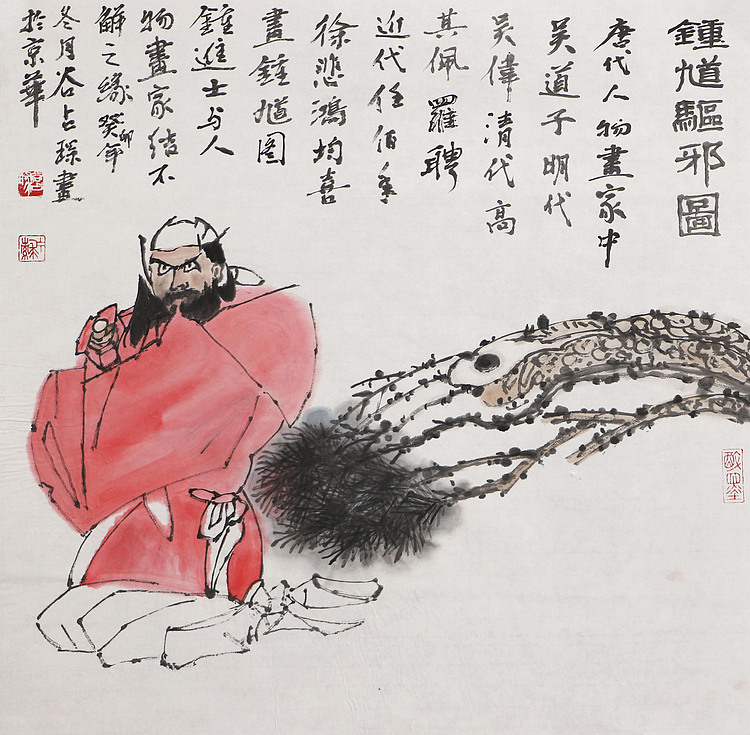 鍾馗驅邪圖
唐代人物畫家中
吴道子明代
吴偉清代高
其佩羅聘
近代任伯年
徐悲鴻均喜
畫鍾馗图
鍾進士与人
物畫家结不
解之缘癸卯年
冬月谷占琛畫
於京華